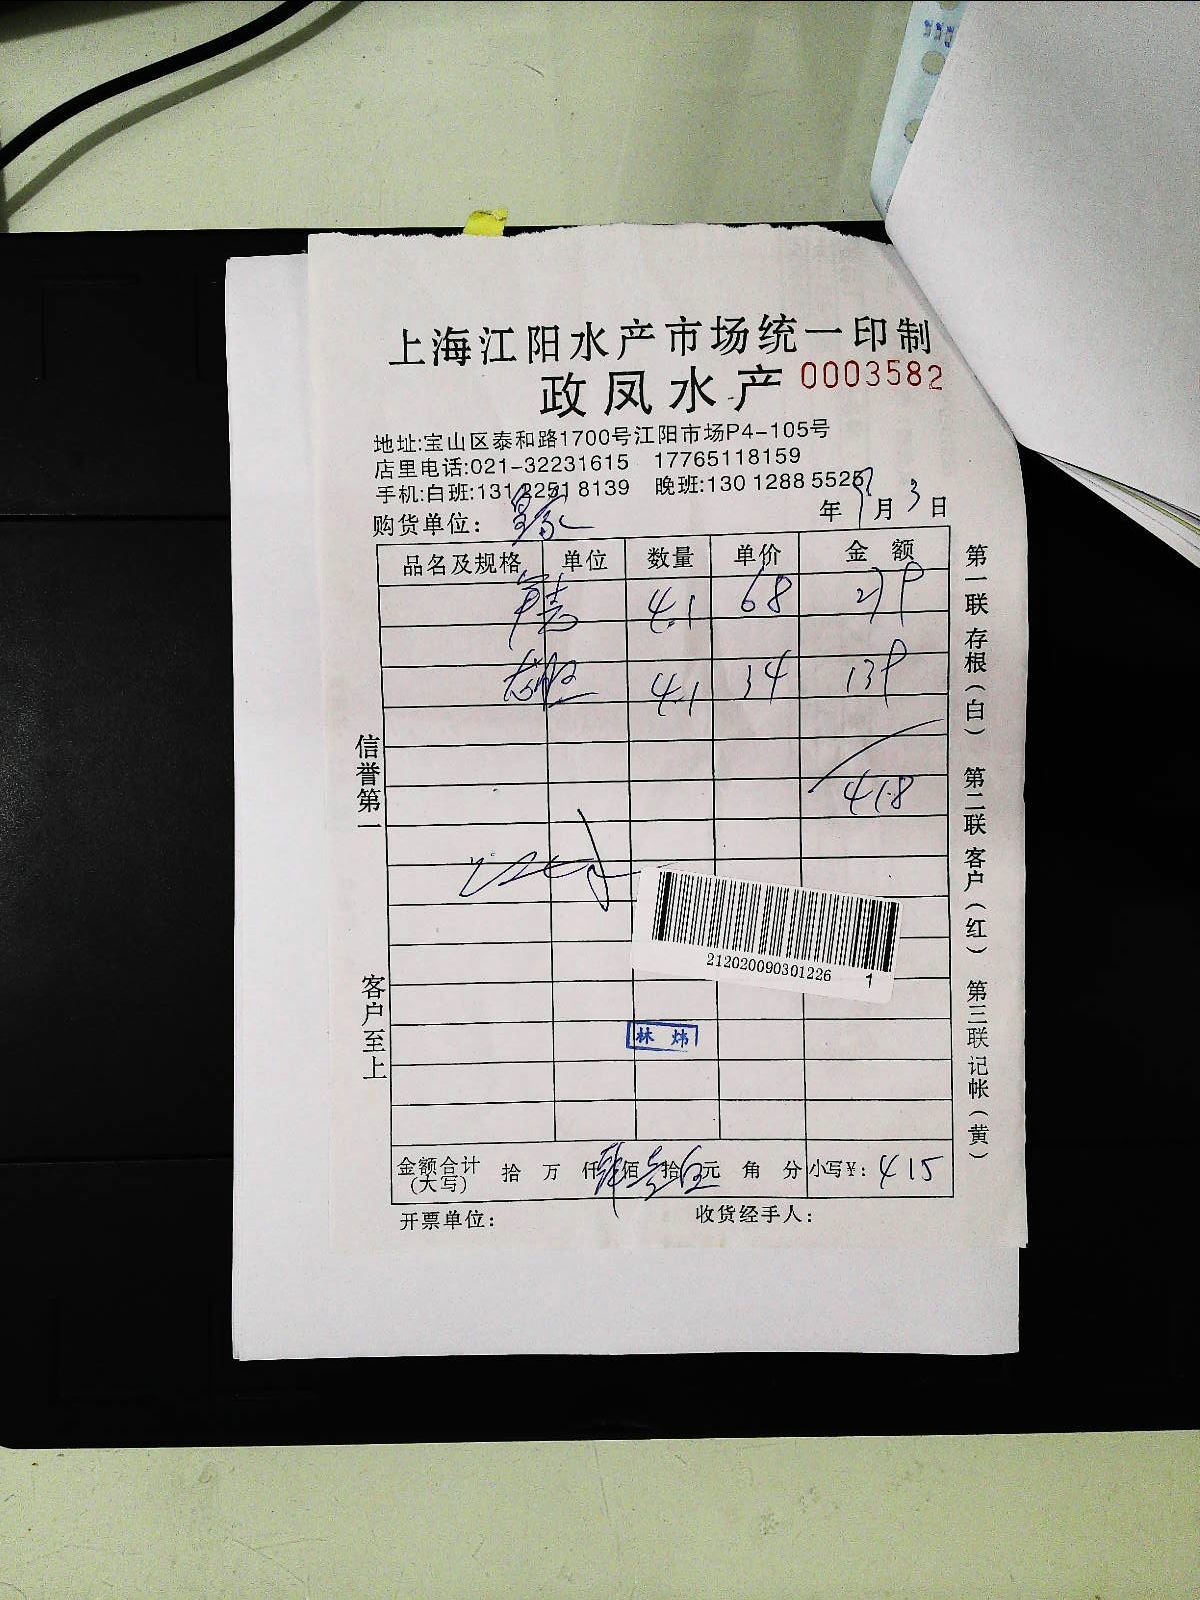 上海江阳水产市场统一印制
政凤水产 0003582
地址:宝山区泰和路1700号江阳市场P4-105号
店里电话:021-32231615 17765118159
手机:白班:131 2251 8139 晚班:130 1288 5525
购货单位: 年 9月 3日
品名及规格 单位 数量 单价 金额
4.1 68 279
4.1 34 139
418
212020090301226 1
林炜
金额合计(大写) 拾 万 仟 肆佰 壹拾 伍元 角 分 小写¥: 415
开票单位: 收货经手人:
信誉第一
客户至上
第一联 存根(白) 第二联 客户(红) 第三联 记帐(黄)